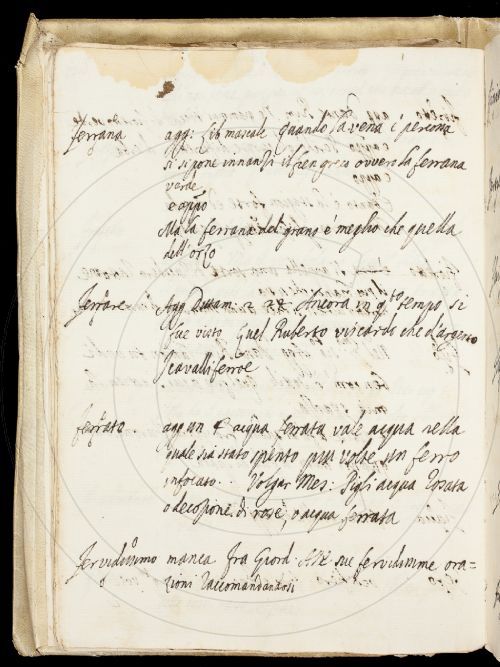 ferrana agg: Lib mascalc Quando la vena è percossa
si si pone innanzi il fien greco ovvero la ferrana
verde
e appo
Ma la ferrana del grano è meglio che quella
dell'orzo
ferrare Agg Dittam 2 28 Ancora in q.to tempo si
fue visto Quel Ruberto viscardo che d'argento
I cavalli ferroe
ferrato. agg un § acqua ferrata vale acqua nella
quale sia stato spento piu volte un ferro
infocato. Volgar Mes: Pigli acqua rosata
o decozione di rose, o acqua ferrata
fervidissimo manca Fra Giord. sue fervidissime ora=
zioni raccomandandosi